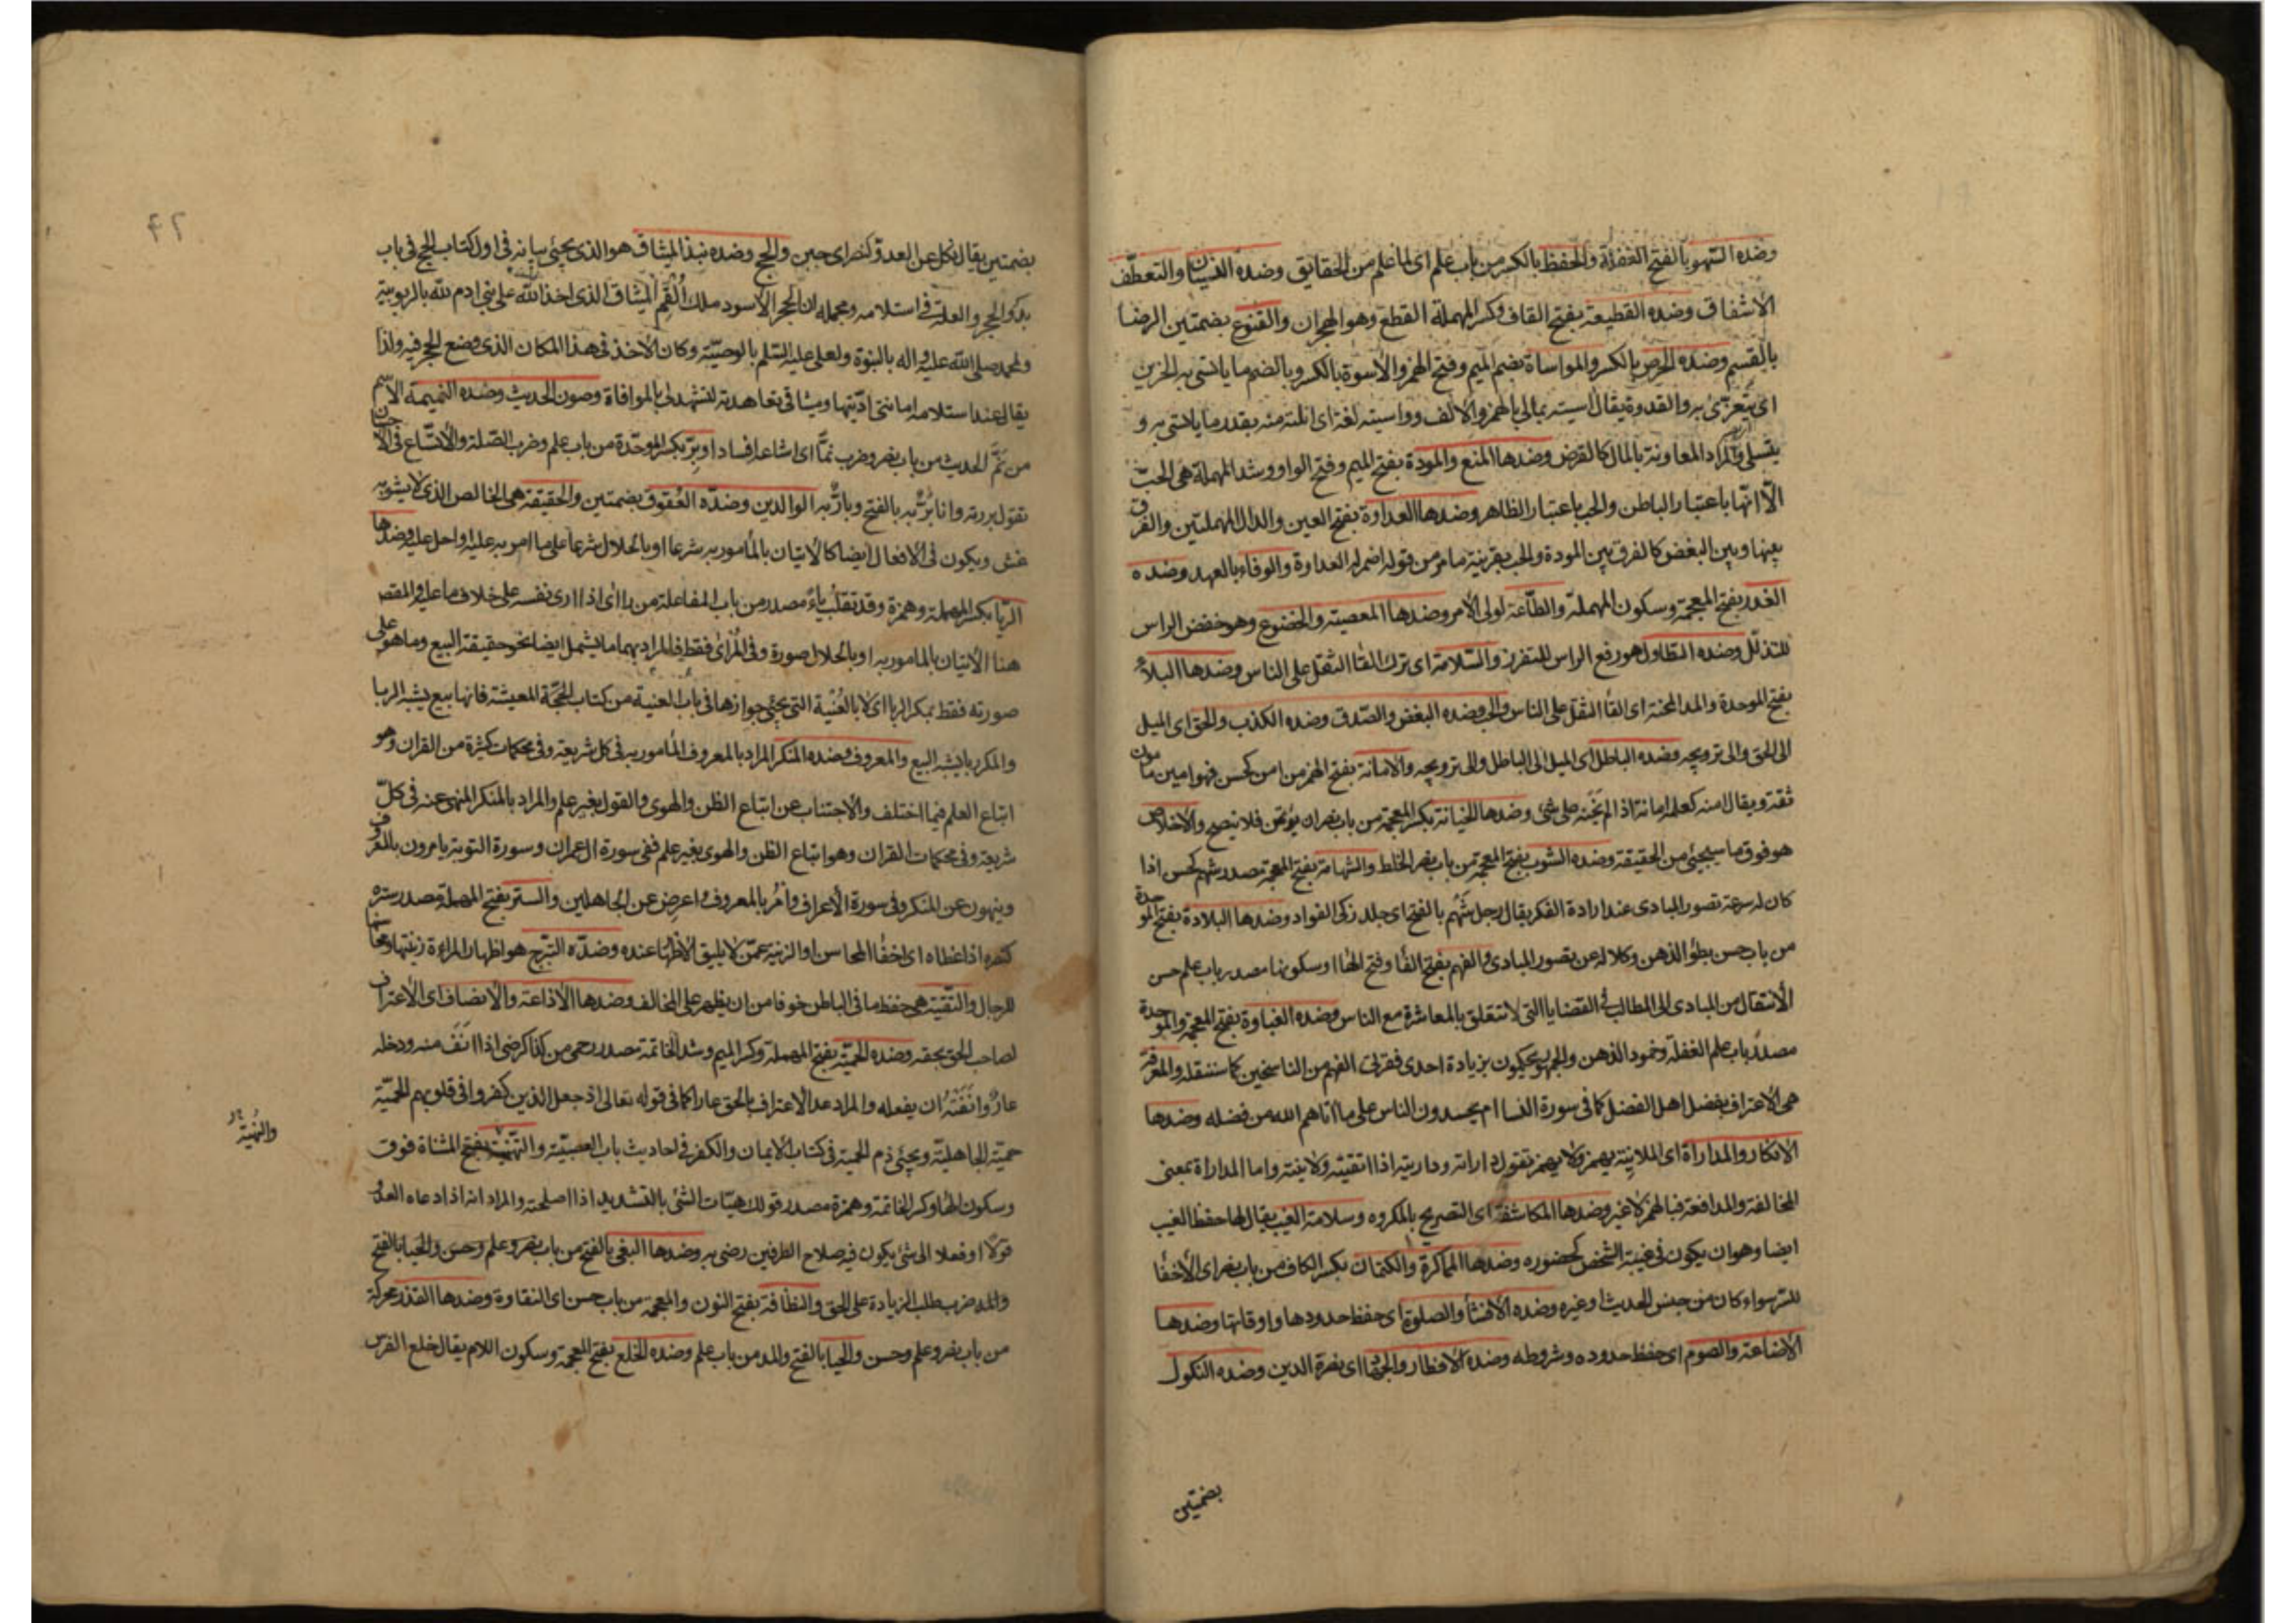 وضده السهو بالفتح الغفلة والحفظ بالكسر من باب علم اى لما علم من الحقايق وضده النسيان والتعطف
الاشفاق وضده القطيعة بفتح القاف وكسر المهملة القطع وهو الهجران والقنوع بضمتين الرضا
بالقسم وضده الحرص بالكسر والمواساة بضم الميم وفتح الهمز والاسوة بالكسر وبالضم ما ياتسى به الحزين
اى يتعزى به والقدوة يقال آسيته بمالى بالهمز والالف وواسيته لغة اى انلته منه بقدر ما ياتسى به و
يتسلى والمراد المعاونة بالمال كالقرض وضدها المنع والمودة بفتح الميم وفتح الواو وشد المهملة هى الحب
الا انها باعتبار الباطن والحب باعتبار الظاهر وضدها العداوة بفتح العين والدال المهملتين والفرق
بينها وبين البغض كالفرق بين المودة والحب بقرينة ما مر من قوله اضمر له العداوة والوفاء بالعهد وضده
الغدر بفتح المعجمة وسكون المهملة والطاعة لولى الامر وضدها المعصية والخضوع وهو خفض الراس
للتذلل وضده التطاول هو رفع الراس للتفرز والسلامة اى ترك القا الثقل على الناس وضدها البلاء
بفتح الموحدة والمد المحنة اى القا الثقل على الناس والحب وضده البغض والصدق وضده الكذب والحق اى الميل
الى الحق والى ترويجه وضده الباطل اى الميل الى الباطل والى ترويجه والامانة بفتح الهمز من امن كحسن فهو امين مامون
ثقة ويقال امنه كعلم امانة اذا لم يخنه على شئ وضدها الخيانة بكسر المعجمة من باب نصر ان يؤتمن فلا ينصح والاخلاص
هو فوق ما سيجيئ من الحقيقة وضده الشوب بفتح المعجمة من باب نصر الخلط والشهامة بفتح المعجمة مصدر شهم كحسن اذا
كان له سرعة تصور المبادى عند ارادة الفكر يقال رجل شهم بالفتح اى جلد زكى الفواد وضدها البلادة بفتح الموحدة
من باب حسن بطؤ الذهن وكلاله عن تصور المبادى والفهم بفتح الفا وفتح الها او سكونها مصدر باب علم حسن
الانتقال من المبادى الى المطالب فى القضايا التى لا تتعلق بالمعاشرة مع الناس وضده الغباوة بفتح المعجمة والموحدة
مصدر باب علم الغفلة وخمود الذهن والجمهور يحكمون بزيادة احدى فقرتى الفهم من الناسخين كما سننقله والمعرفة
هى الاعتراف بفضل اهل الفضل كما فى سورة النسا ام يحسدون الناس على ما اتاهم الله من فضله وضدها
الانكار والمداراة اى الملاينة يهمز ولا يهمز تقول داراته وداريته اذا اتقيته ولاينته واما المداراة بمعنى
المخالفة والمدافعة فبالهمز لا غير وضدها المكاشفة اى التصريح بالمكروه وسلامة الغيب يقال لها حفظ الغيب
ايضا وهو ان يكون فى غيبة الشخص كحضوره وضدها المماكرة والكتمان بكسر الكاف من باب نصر اى الاخفا
للسر سواء كان من جنس الحديث او غيره وضده الافشا والصلوة اى حفظ حدودها واوقاتها وضدها
الاضاعة والصوم اى حفظ حدوده وشروطه وضده الافطار والجهاد اى نصرة الدين وضده النكول
بضمتين
بضمتين يقال نكل عن العدو كنصر اى جبن والحج وضده نبذ الميثاق هو الذى يجيئ بيانه فى اول كتاب الحج فى باب
بدو الحجر والعلة فى استلامه ومجمله ان الحجر الاسود ملك القم الميثاق الذى اخذ الله على بنى ادم لله بالربوبية
ولمحمد صلى الله عليه واله بالنبوة ولعلى عليه السلم بالوصية وكان الاخذ فى هذا المكان الذى وضع الحجر فيه ولذا
يقال عند استلامه امانتى اديتها وميثاقى تعاهدته لتشهد لى بالموافاة وصون الحديث وضده النميمة الاسم
من نم الحديث من باب نصر وضرب نما اى اشاعه افسادا وبر بكسر الموحدة من باب علم وضرب الصلة والاتساع فى الاحسان
تقول بررته وانا بر به بالفتح وبار به الوالدين وضده العقوق بضمتين والحقيقة هى الخالص الذى لا يشوبه
غش ويكون فى الافعال ايضا كالاتيان بالمأمور به شرعا او بالحلال شرعا على ما امر به عليه او احل عليه وضدها
الريا بكسر المهملة وهمزة وقد تقلب ياء مصدر من باب المفاعلة من رااى اذا ارى نفسه على خلاف ما عليه والمقصود
هنا الاتيان بالمامور به او بالحلال صورة وفى المرأى فقط فالمراد بهما ما يشمل ايضا نحو حقيقة البيع وما هو على
صورته فقط بمكر الربا اى لا بالعينة التى يجيئ جوازها فى باب العينة من كتاب المعيشة فانها بيع يشبه الربا
والمكر ربا يشبه البيع والمعروف وضده المنكر المراد بالمعروف المأمور به فى كل شريعة وفى محكمات كثيرة من القران وهو
اتباع العلم فيما اختلف والاجتناب عن اتباع الظن والهوى والقول بغير علم والمراد بالمنكر المنهى عنه فى كل
شريعة وفى محكمات القران وهو اتباع الظن والهوى بغير علم ففى سورة ال عمران وسورة التوبة يامرون بالمعروف
وينهون عن المنكر وفى سورة الاعراف وامر بالمعروف واعرض عن الجاهلين والستر بفتح المهملة مصدر ستره
كنصره اذا غطاه اى اخفا المحاسن او الزينة عمن لا يليق الاظهار عنده وضده التبرج هو اظهار المراءة زينتها ومحاسنها
للرجال والتقية هى حفظ ما فى الباطن خوفا من ان يظهر على المخالف وضدها الاذاعة والانصاف اى الاعتراف
لصاحب الحق بحقه وضده الحمية بفتح المهملة وكسر الميم وشد الخاتمة مصدر حمى من كذا كرضى اذا انف منه ودخله
عار وانفة ان يفعله والمراد عد الاعتراف بالحق عارا كما فى قوله تعالى اذ جعل الذين كفروا فى قلوبهم الحمية
حمية الجاهلية ويجيئ ذم الحمية فى كتاب الايمان والكفر فى احاديث باب العصبية والتهيئة بفتح المثناة فوق
وسكون الها وكسر الخاتمة وهمزة مصدر قولك هيات الشئ بالتشديد اذا اصلحته والمراد انه اذا دعاه العدو
قولا او فعلا الى شئ يكون فيه صلاح الطرفين رضى به وضدها البغى بالفتح من باب نصر وعلم وحسن والحيا بالفتح
والمد ضرب طلب الزيادة على الحق والنظافة بفتح النون والمعجمة من باب حسن اى النقاوة وضدها القذر محركة
من باب نصر وعلم وحسن والحيا بالفتح والمد من باب علم وضده الخلع بفتح المعجمة وسكون اللام يقال خلع الفرس